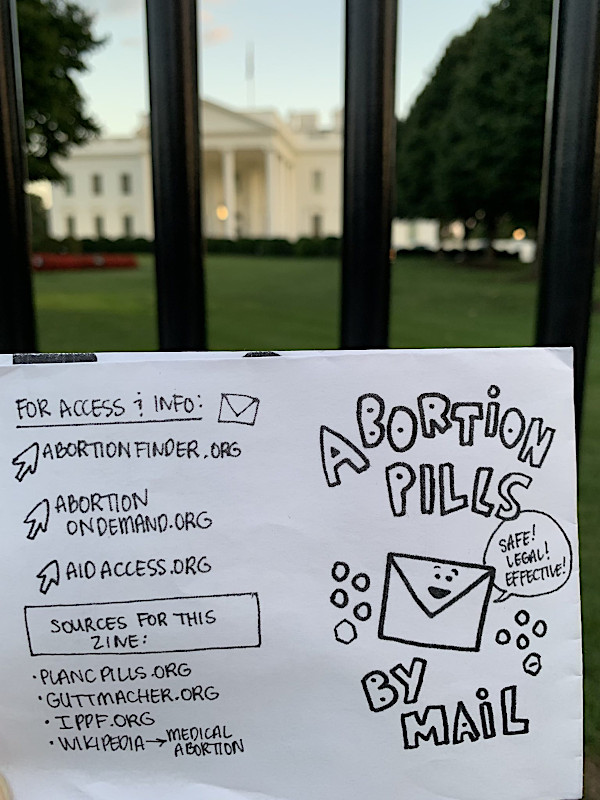 FOR ACCESS & INFO:
ABORTIONFINDER.ORG
ABORTION
ONDEMAND.ORG
AIDACCESS.ORG
SOURCES FOR THIS
ZINE:
• PLANCPILLS.ORG
• GUTTMACHER.ORG
• IPPF.ORG
• WIKIPEDIA → MEDICAL
ABORTION
ABORTION
PILLS
SAFE!
LEGAL!
EFFECTIVE!
BY
MAIL